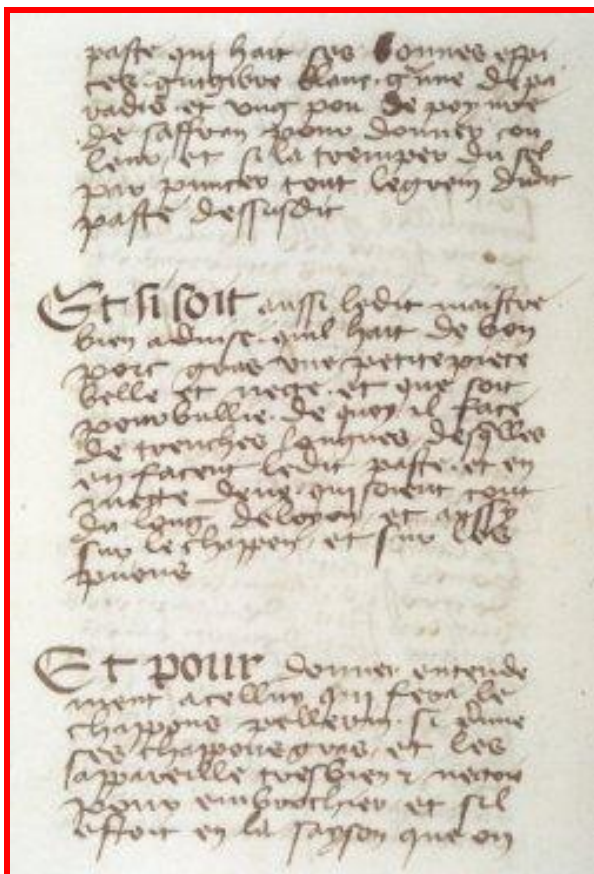 paste qui hait ses bonnes espi
ces gingibre blanc g'ine de pa
radis et ung pou de poyvre
de saffran pour donner cou
leur et si la tremper du sel
par puncer tout le grein dudit
paste dessusdit
Et si soit aussi ledit maistre
bien advise quil hait de bon
porc gras une petite piece
belle et necte et que soit
pourbullie de quoy il face
de trenches longues desq'lles
en facent ledit paste et en
mecte deux qui soient tout
du long deloyon et aussy
sur le chappon et sur les
pijons
Et pour donner entende
ment a celluy qui fera le
chappons pellerin si prine
ses chappons gras et les
appareille tresbien & necton
pour embrochier et sil
estoit en la sayson que on